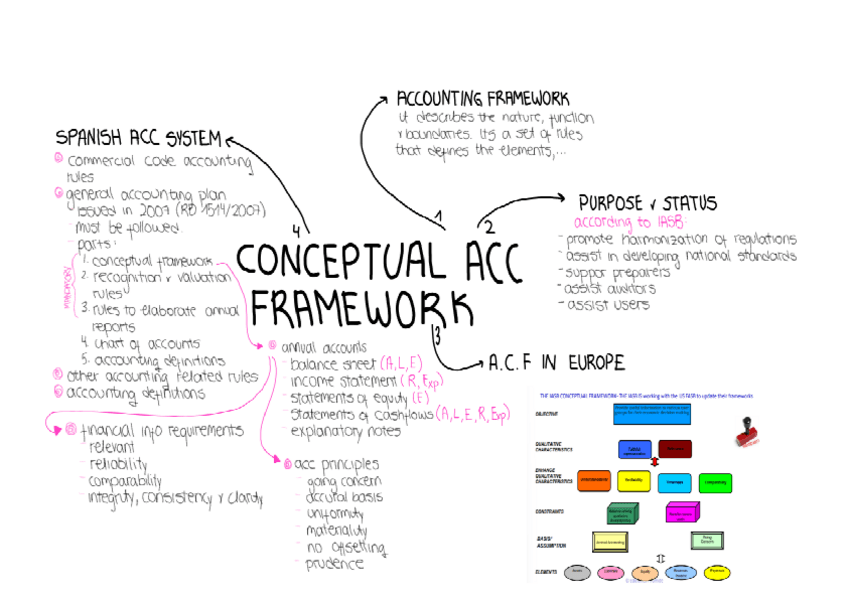 ACCOUNTING FRAMEWORK
it describes the nature, function
& boundaries. Its a set of rules
that defines the elements,...
SPANISH ACC SYSTEM
commercial code accounting
rules
general accounting plan
issued in 2007 (RD 1514/2007)
- must be followed
- parts:
MANDATORY
1. conceptual framework
2. recognition & valuation
rules
3. rules to elaborate annual
reports
4. chart of accounts
5. accounting definitions
other accounting related rules
accounting definitions
PURPOSE & STATUS
according to IASB:
- promote harmonization of regulations
- assist in developing national standards
- suppor preparers
- assist auditors
- assist users
1
2
3
4
CONCEPTUAL ACC
FRAMEWORK
A.C.F IN EUROPE
annual accounts
- balance sheet (A, L, E)
- income statement (R, Exp)
- statements of equity (E)
- statements of cashflows (A, L, E, R, Exp)
- explanatory notes
financial info requirements
- relevant
- reliability
- comparability
- integrity, consistency & clarity
acc principles
- going concern
- accrual basis
- uniformity
- materiality
- no offsetting
- prudence
THE IASB CONCEPTUAL FRAMEWORK- THE IASB IS working with the US FASB to update their frameworks
OBJECTIVE
QUALITATIVE
CHARACTERISTICS
ENHANCE
QUALITATIVE
CHARACTERISTICS
CONSTRAINTS
BASIS/
ASSUMPTION
Going
Concern
ELEMENTS
Assets
Equity